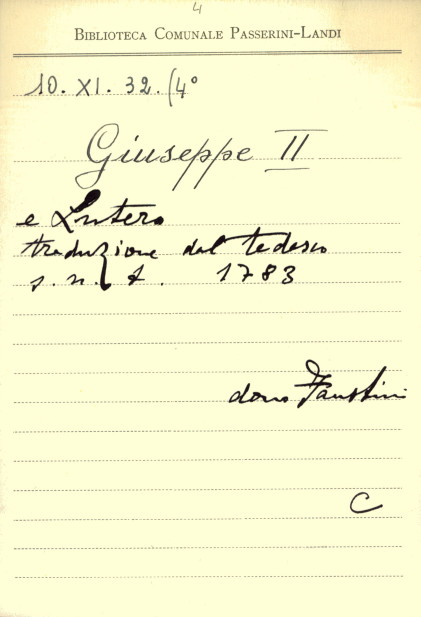 4
BIBLIOTECA COMUNALE PASSERINI-LANDI
10. XI. 32. (4°
Giuseppe II
e Lutero
traduzione dal tedesco
s. n. t. 1783
dono Faustini
C